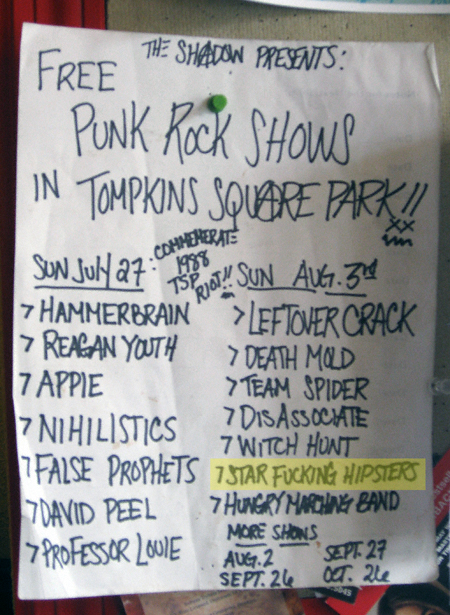 THE SHADOW PRESENTS:
FREE
PUNK ROCK SHOWS
IN TOMPKINS SQUARE PARK!!
XX
SUN JULY 27:
COMMEMERATE
1988
TSP
RIOT!!
7 HAMMERBRAIN
7 REAGAN YOUTH
7 APPIE
7 NIHILISTICS
7 FALSE PROPHETS
7 DAVID PEEL
7 PROFESSOR LOUIE
SUN AUG. 3rd
7 LEFTOVER CRACK
7 DEATH MOLD
7 TEAM SPIDER
7 DISASSOCIATE
7 WITCH HUNT
7 STAR FUCKING HIPSTERS
7 HUNGRY MARCHING BAND
MORE SHOWS
AUG. 2 SEPT. 27
SEPT. 26 OCT. 26